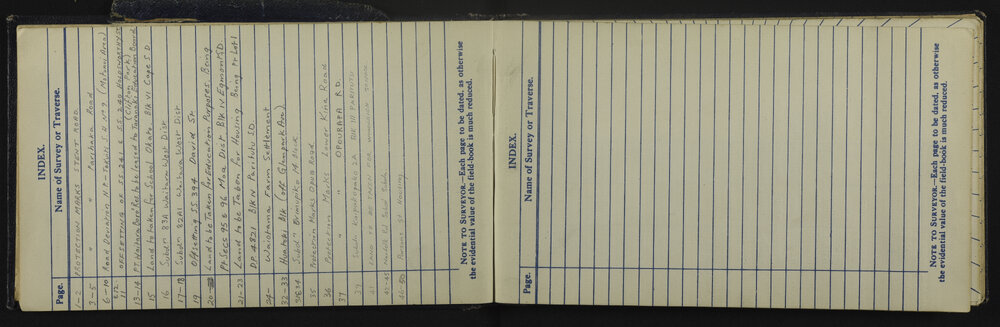 INDEX.
Page. Name of Survey or Traverse.
1-2 PROTECTION MARKS STENT ROAD
3-5 " " Parihaka Road
6-10 Road Deviation N.P.-Opunake S.H. Nº (Motunui Area)
OFFSETTING OF SS 241 & SS 240
11 (Clifton Park)
13-14 PT Waitara Boro' Res to be leased to Taranaki Education Board
15 Land to be taken for School Okato Blk VI Cape S.D
16 Subdn 83A Waitara West Dist
17-18 Subdn 82A1 Waitara West Dist
19 Offsetting SS 394 David St.
20 Land to be Taken for Education Purposes. Being
Pt Secs 95 & 96 Moa Dist Blk IV Egmont S.D.
21-23 Land to be Taken for Housing Being Pt Lot 1
DP 4821 Blk N Paritutu SD.
24- Waiotama Farm Settlement
32-33 Huatoki Blk (off Glenpark Ave)
Subdn
35 Protection Marks Opua Road
36 Protection Marks Lower Kina Road
37 " " OPOURAPA RD.
39 Subdn 2A BLK III PARITUTU
41 LAND TO BE TAKEN FOR
42-45
46-50 Parsons St Housing
NOTE TO SURVEYOR.—Each page to be dated, as otherwise
the evidential value of the field-book is much reduced.
INDEX.
Page. Name of Survey or Traverse.
NOTE TO SURVEYOR.—Each page to be dated, as otherwise
the evidential value of the field-book is much reduced.